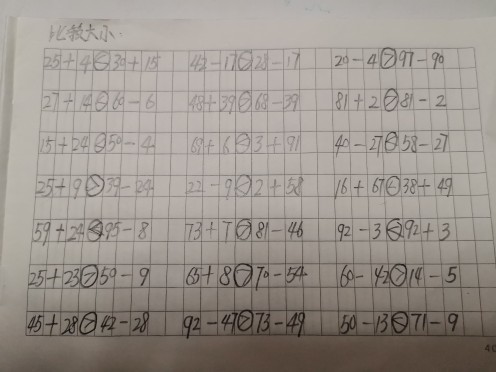 比较大小:
25+4<30+15 42-17<28-17 20-4>97-90
27+14<60-6 48+39>68-39 81+2>81-2
15+24<50-4 69+6<3+91 40-27<58-27
25+9>39-24 22-9<2+58 16+67<38+49
59+24<95-8 73+7>81-46 92-3<92+3
25+23>59-9 65+8>70-54 60-42>14-5
45+28>42-28 92-47>73-49 50-13<71-9